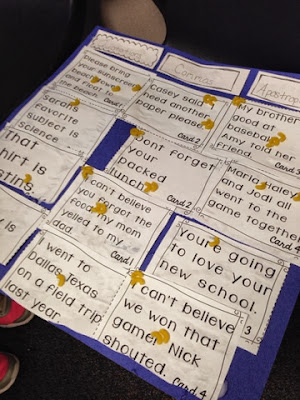 Commas
Apostrop
please bring
your sunscreen
beach
and float to
the beach.
Card 1
Casey said
need another
paper please
Card 2
My brother
good at
baseball
Amy told her
friend.
Sarahs
favorite
subject is
science
That
shirt is
Dont forget
your
packed
lunch
Card 2
Maria Haley
and Jodi all
went to the
game together
Card 4
can't believe
you forgot the
food my mom
yelled to my
dad
Card 1
Youre going
to love your
new school.
3
is
I went to
Dallas Texas
on a field trip
last year
can't believe
we won that
game, Nick
shouted.
Card 4